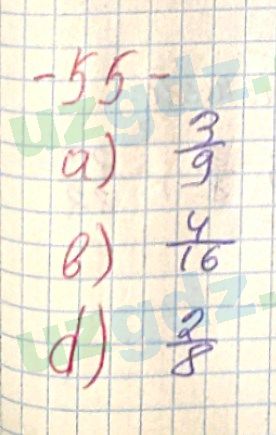 -55-
a) 3/9
в) 4/16
d) 2/8
uzgdz.
uzgdz.